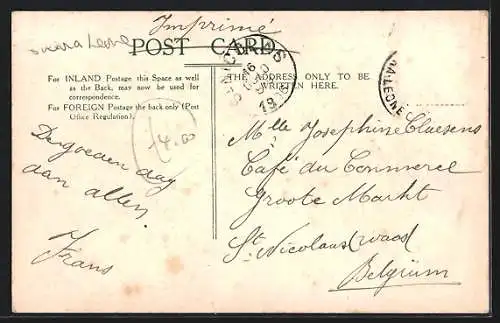 Imprimé
Sierra Leone
POST CARD
For INLAND Postage this Space as well
as the Back, may now be used for
correspondence.
For FOREIGN Postage the back only (Post
Office Regulation).
THE ADDRESS ONLY TO BE
WRITTEN HERE.
16
19
A LEONE
14.00
De goeden dag
aan allen
Frans
Mlle Josephine Claesens
Café du Commerce
Groote Markt
St. Nicolaas (waas)
Belgium